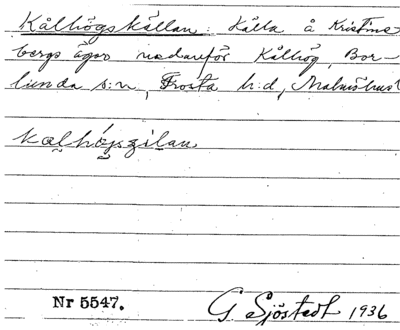 Kålhögskällan: Källa å Kristine-
bergs ägor nedanför Kålhög, Bor-
lunda s:n, Frosta h:d, Malmöhus l
Nr 5547.
G Sjöstedt 1936